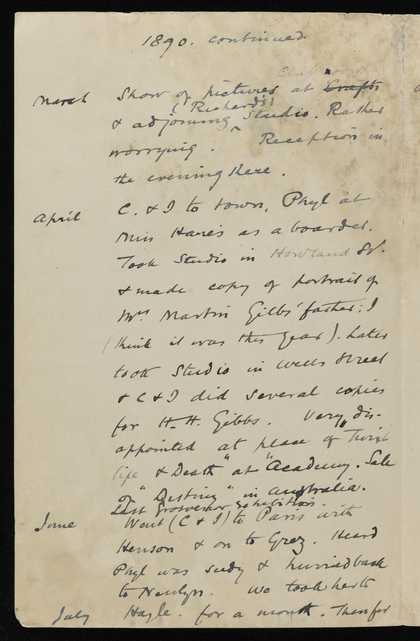 1890. continued
March Show of pictures at Crafts
(Richards)
& adjoining Studio. Rather
worrying. Reception in
the evening here.
April C. & I to town, Phyl at
Miss Hare's as a boarder.
Took Studio in Howland St.
& made copy of portrait of
Mrs Martin Gibbs' father: I
(think it was this year). Later
took Studio in Wells Street
& C & I did several copies
for H. H. Gibbs. Very dis-
appointed at place of
life & Death" at "Academy. Sale
of "Destiny" in Australia.
Last Grosvenor exhibition.
June Went (C & I) to Paris with
Henson & on to Grez. Heard
Phyl was seedy & hurried back
to Newlyn. We took her to
July Hayle. for a month. Then for